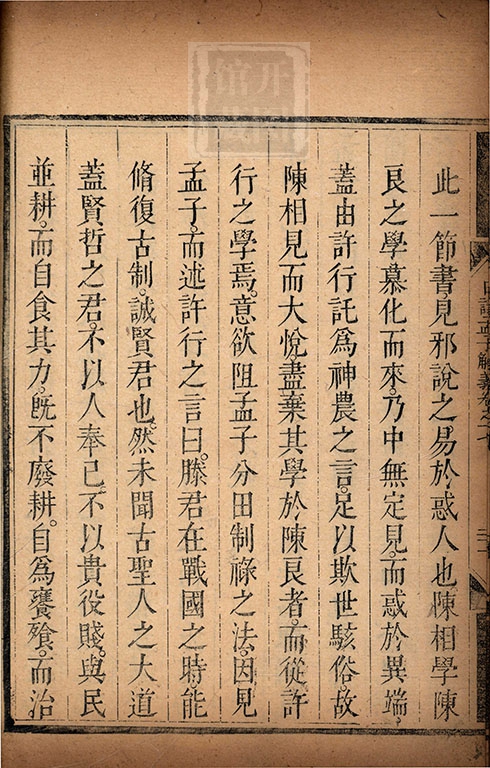 此一節書見邪說之易於惑人也陳相學陳
良之學慕化而來乃中無定見而惑於異端
蓋由許行託為神農之言足以欺世駭俗故
陳相見而大悅盡棄其學於陳良者而從許
行之學焉意欲阻孟子分田制祿之法因見
孟子而述許行之言曰滕君在戰國之時能
脩復古制誠賢君也然未聞古聖人之大道
蓋賢哲之君不以人奉己不以貴役賤與民
並耕而自食其力既不廢耕自為饔飧而治